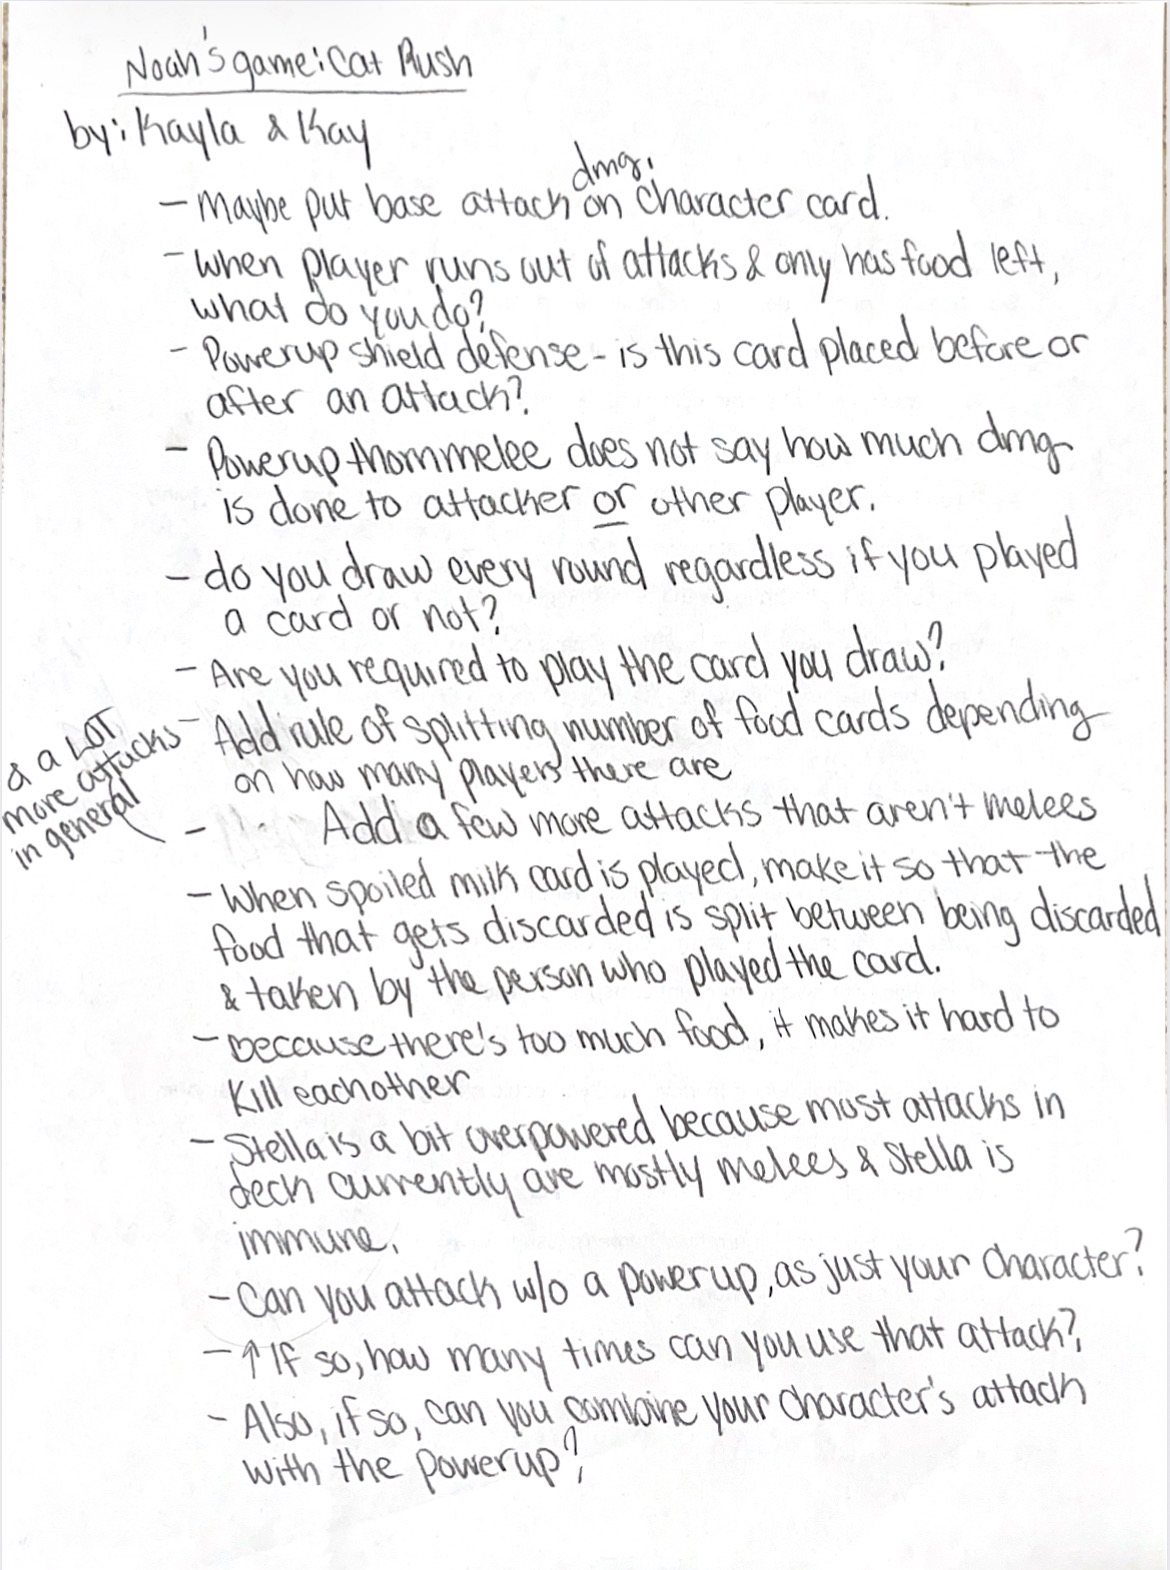 Noah's game: Cat Rush
by: Kayla & Kay
- Maybe put base attack dmg. on character card.
- When player runs out of attacks & only has food left,
what do you do?
- Powerup shield defense - is this card placed before or
after an attack?
- Powerup thornmelee does not say how much dmg
is done to attacker or other player.
- do you draw every round regardless if you played
a card or not?
- Are you required to play the card you draw?
- Add rule of splitting number of food cards depending
on how many players there are
- Add a few more attacks that aren't melees
& a LOT
more attacks
in general
- When spoiled milk card is played, make it so that the
food that gets discarded is split between being discarded
& taken by the person who played the card.
- because there's too much food, it makes it hard to
kill eachother
- Stella is a bit overpowered because most attacks in
deck currently are mostly melees & Stella is
immune.
- Can you attack w/o a powerup, as just your character?
- ↑ If so, how many times can you use that attack?
- Also, if so, can you combine your character's attack
with the powerup?